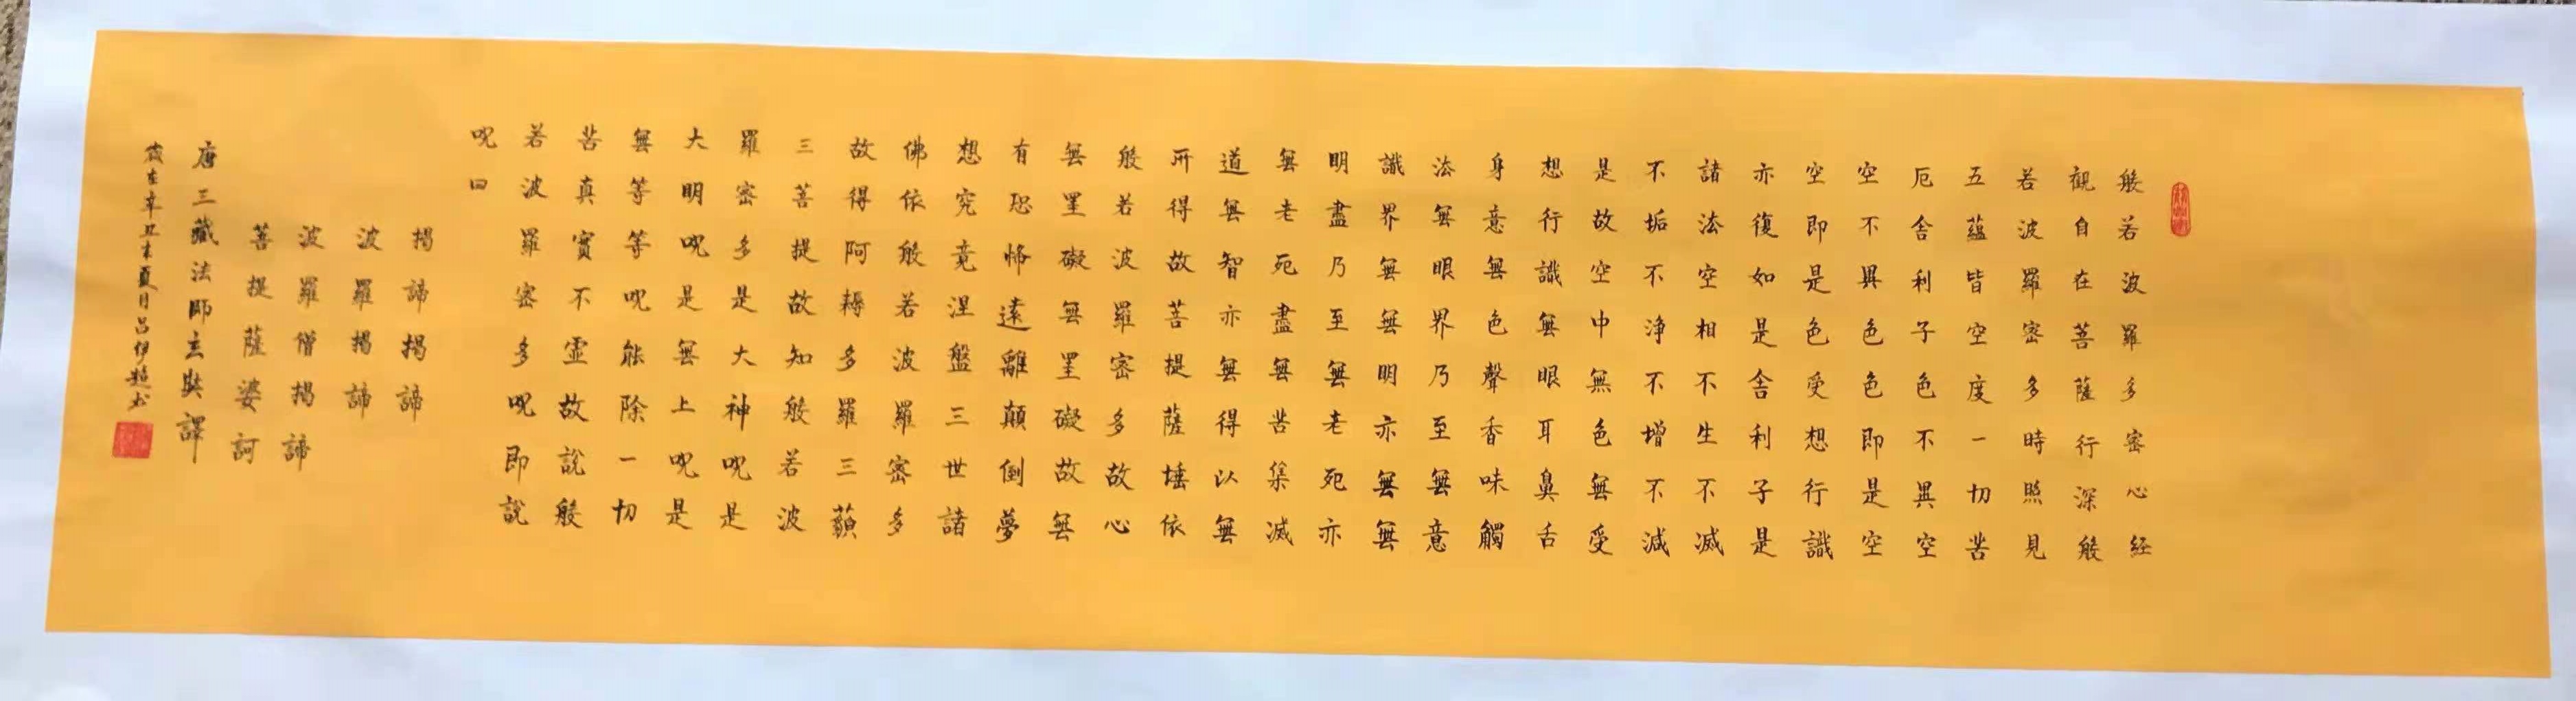 般若波羅多密心経
觀自在菩薩行深般
若波羅密多時照見
五蘊皆空度一切苦
厄舍利子色不異空
空不異色色即是空
空即是色受想行識
亦復如是舍利子是
諸法空相不生不滅
不垢不净不增不減
是故空中無色無受
想行識無眼耳鼻舌
身意無色聲香味觸
法無眼界乃至無意
識界無無明亦無無
明盡乃至無老死亦
無老死盡無苦集滅
道無智亦無得以無
所得故菩提薩埵依
般若波羅密多故心
無罣礙無罣礙故無
有恐怖遠離顛倒夢
想究竟涅盤三世諸
佛依般若波羅密多
故得阿耨多羅三藐
三菩提故知般若波
羅密多是大神咒是
大明咒是無上咒是
無等等咒能除一切
苦真實不虛故說般
若波羅密多咒即說
咒曰
揭諦揭諦
波羅揭諦
波羅僧揭諦
菩提薩婆訶
唐三藏法師玄奘譯
歲在辛丑末夏月呂伊超书